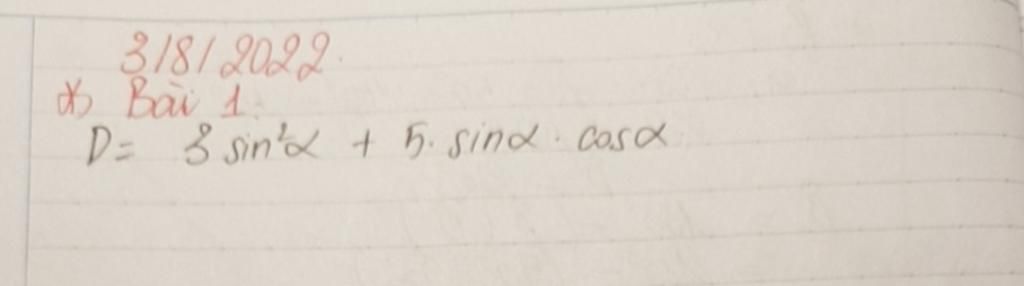 3/8/2022.
*) Bài 1:
D = 3 sin²α + 5. sinα . cosα